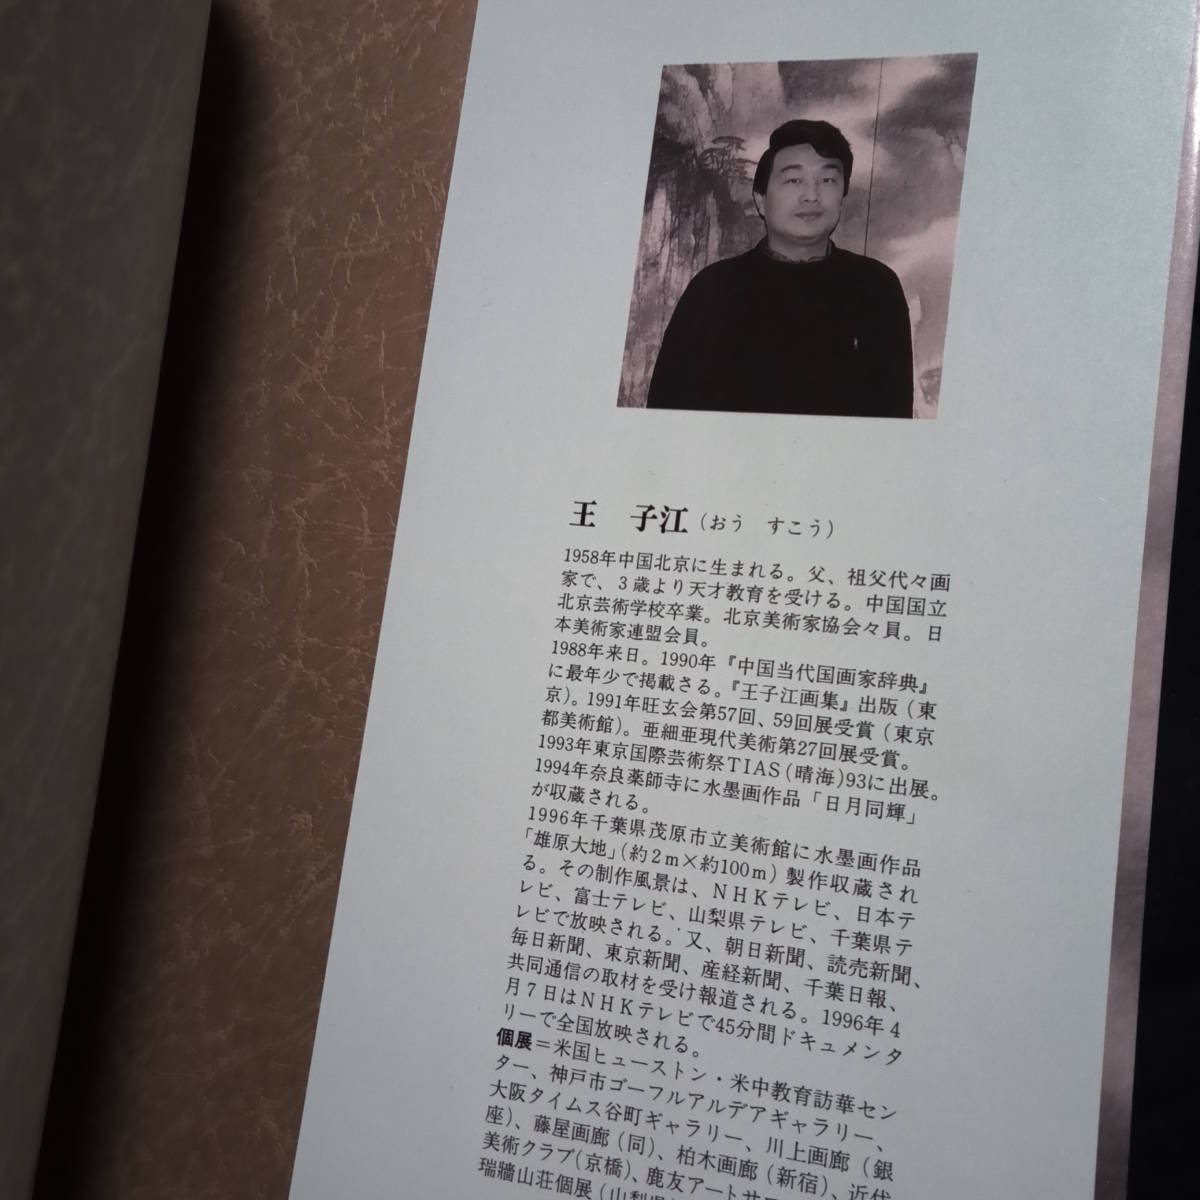 王 子江（おう すこう）
1958年中国北京に生まれる。父、祖父代々画
家で、3歳より天才教育を受ける。中国国立
北京芸術学校卒業。北京美術家協会々員。日
本美術家連盟会員。
1988年来日。1990年『中国当代国画家辞典』
に最年少で掲載さる。『王子江画集』出版（東
京）。1991年旺玄会第57回、59回展受賞（東京
都美術館）。亜細亜現代美術第27回展受賞。
1993年東京国際芸術祭TIAS（晴海）93に出展。
1994年奈良薬師寺に水墨画作品「日月同輝」
が収蔵される。
1996年千葉県茂原市立美術館に水墨画作品
「雄原大地」（約2m×約100m）製作収蔵され
る。その制作風景は、NHKテレビ、日本テ
レビ、富士テレビ、山梨県テレビ、千葉県テ
レビで放映される。又、朝日新聞、読売新聞、
毎日新聞、東京新聞、産経新聞、千葉日報、
共同通信の取材を受け報道される。1996年4
月7日はNHKテレビで45分間ドキュメンタ
リーで全国放映される。
個展＝米国ヒューストン・米中教育訪華セン
ター、神戸市ゴーフルアルデアギャラリー、
大阪タイムス谷町ギャラリー、川上画廊（銀
座）、藤屋画廊（同）、柏木画廊（新宿）、近代
美術クラブ（京橋）、鹿友アートサ
瑞牆山荘個展（山梨県